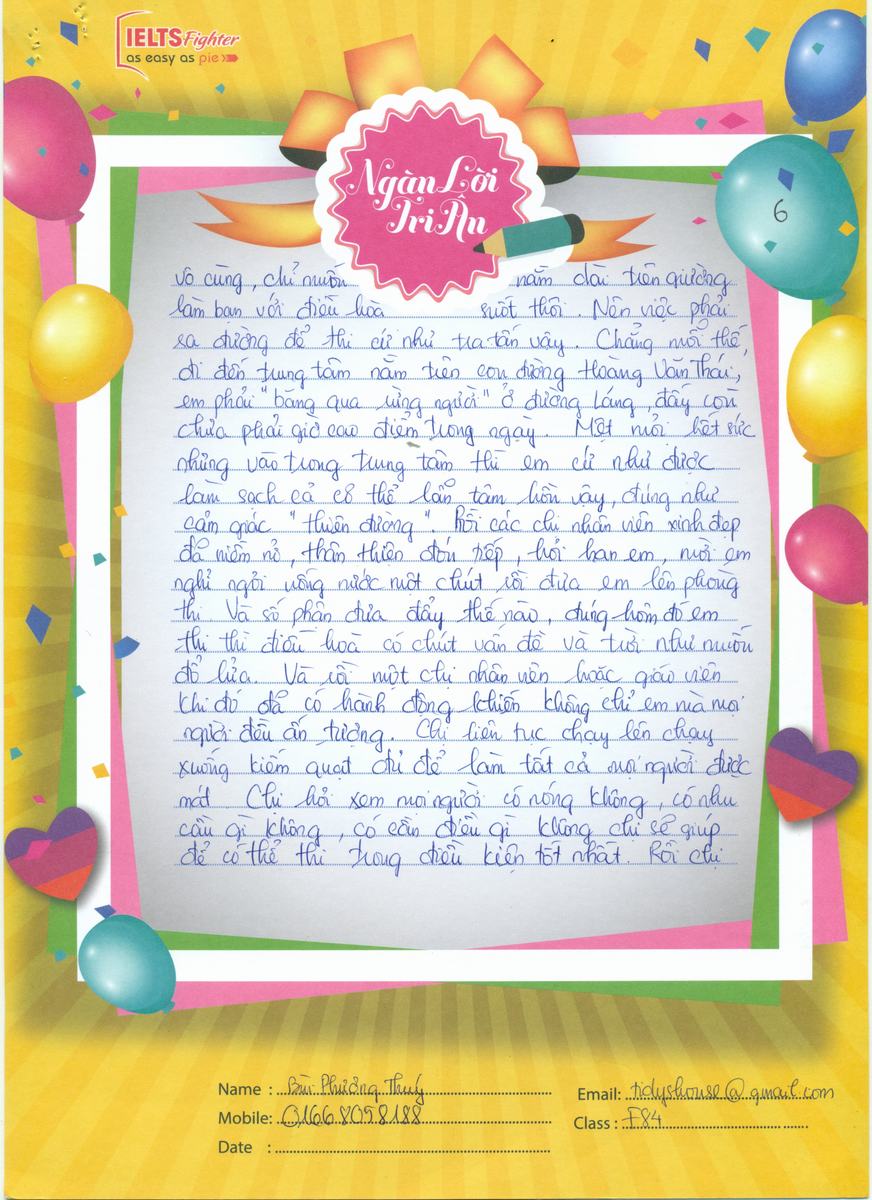 IELTS Fighter
as easy as pie
Ngàn Lời
Tri Ân
6
vô cùng, chỉ muốn nằm dài trên giường
làm bạn với điều hoà suốt thôi. Nên việc phải
ra đường để thi cứ như tra tấn vậy. Chẳng mỗi thế,
đi đến trung tâm nằm trên con đường Hoàng Văn Thái,
em phải "băng qua rừng người" ở đường Láng, đấy còn
chưa phải giờ cao điểm trong ngày. Mệt mỏi hết sức
nhưng vào trong trung tâm thì em cứ như được
làm sạch cả cơ thể lẫn tâm hồn vậy, đúng như
cảm giác "thiên đường". Rồi các chị nhân viên xinh đẹp
đã niềm nở, thân thiện đón tiếp, hỏi han em, mời em
nghỉ ngơi uống nước một chút rồi đưa em lên phòng
thi. Và số phận đưa đẩy thế nào, đúng hôm đó em
thi thì điều hoà có chút vấn đề và trời như muốn
đổ lửa. Và rồi một chị nhân viên hoặc giáo viên
khi đó đã có hành động khiến không chỉ em mà mọi
người đều ấn tượng. Chị liên tục chạy lên chạy
xuống kiếm quạt đủ để làm tất cả mọi người được
mát. Chị hỏi xem mọi người có nóng không, có nhu
cầu gì không, có cần điều gì không chị sẽ giúp
để có thể thi trong điều kiện tốt nhất. Rồi chị
Name : Bùi Phương Thuý
Email: tidyshouse@gmail.com
Mobile: 01668098188
Class : F84
Date :